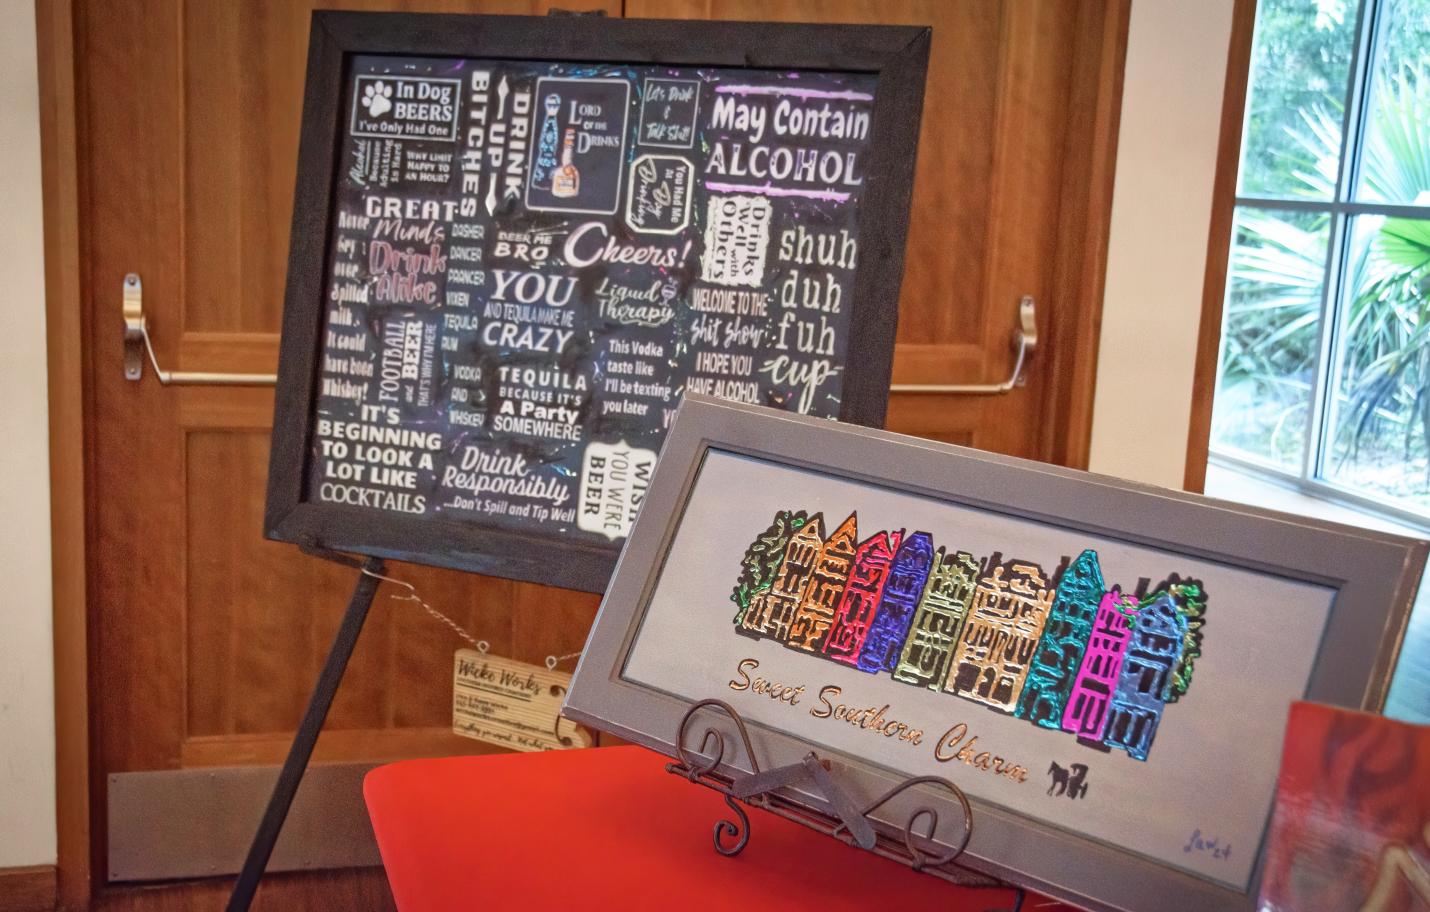 In Dog
BEERS
I've Only Had One
Alcohol
Because
Adulting
is Hard
WHY LIMIT
HAPPY TO
AN HOUR?
DRINK
UP
BITCHES
LORD
OF THE
DRINKS
Let's Drink
&
Talk Shit!
You Had Me
At Day
Drinking
May Contain
ALCOHOL
GREAT
Minds
Drink
Alike
Never
cry
over
Spilled
milk.
It could
have been
Whiskey!
DASHER
DANCER
PRANCER
VIXEN
TEQUILA
RUM
VODKA
AND
WHISKEY
BEER ME
BRO
Cheers!
Drinks
Well with
Others
shuh
duh
fuh
cup
YOU
AND TEQUILA MAKE ME
CRAZY
Liquid
Therapy
WELCOME TO THE
shit show
I HOPE YOU
HAVE ALCOHOL
FOOTBALL
and BEER
THAT'S WHY I'M HERE
This Vodka
taste like
I'll be texting
you later
TEQUILA
BECAUSE IT'S
A Party
SOMEWHERE
IT'S
BEGINNING
TO LOOK A
LOT LIKE
COCKTAILS
Drink
Responsibly
...Don't Spill and Tip Well
WISH
YOU WERE
BEER
Wicke Works
Sweet Southern Charm